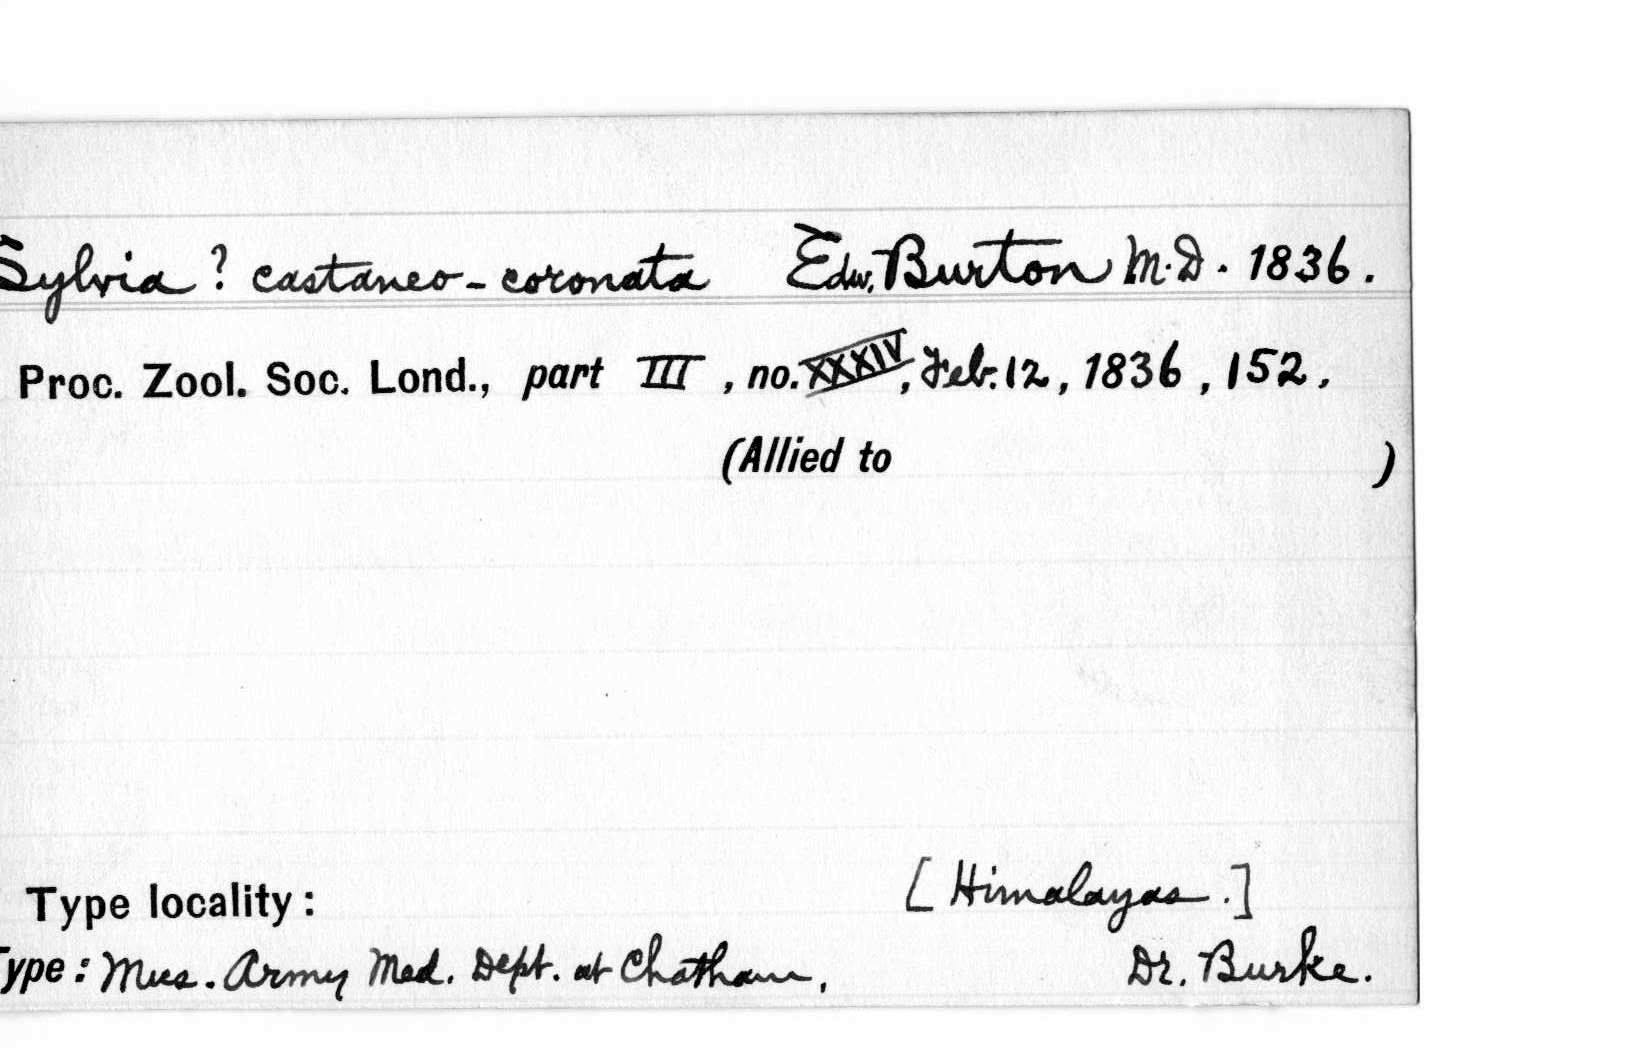 Sylvia ? castaneo-coronata Edw. Burton M.D. 1836.
Proc. Zool. Soc. Lond., part III, no. XXXIV, Feb. 12, 1836, 152.
(Allied to )
Type locality: [Himalayas.]
Type: Mus. Army Med. Dept. at Chatham, Dr. Burke.